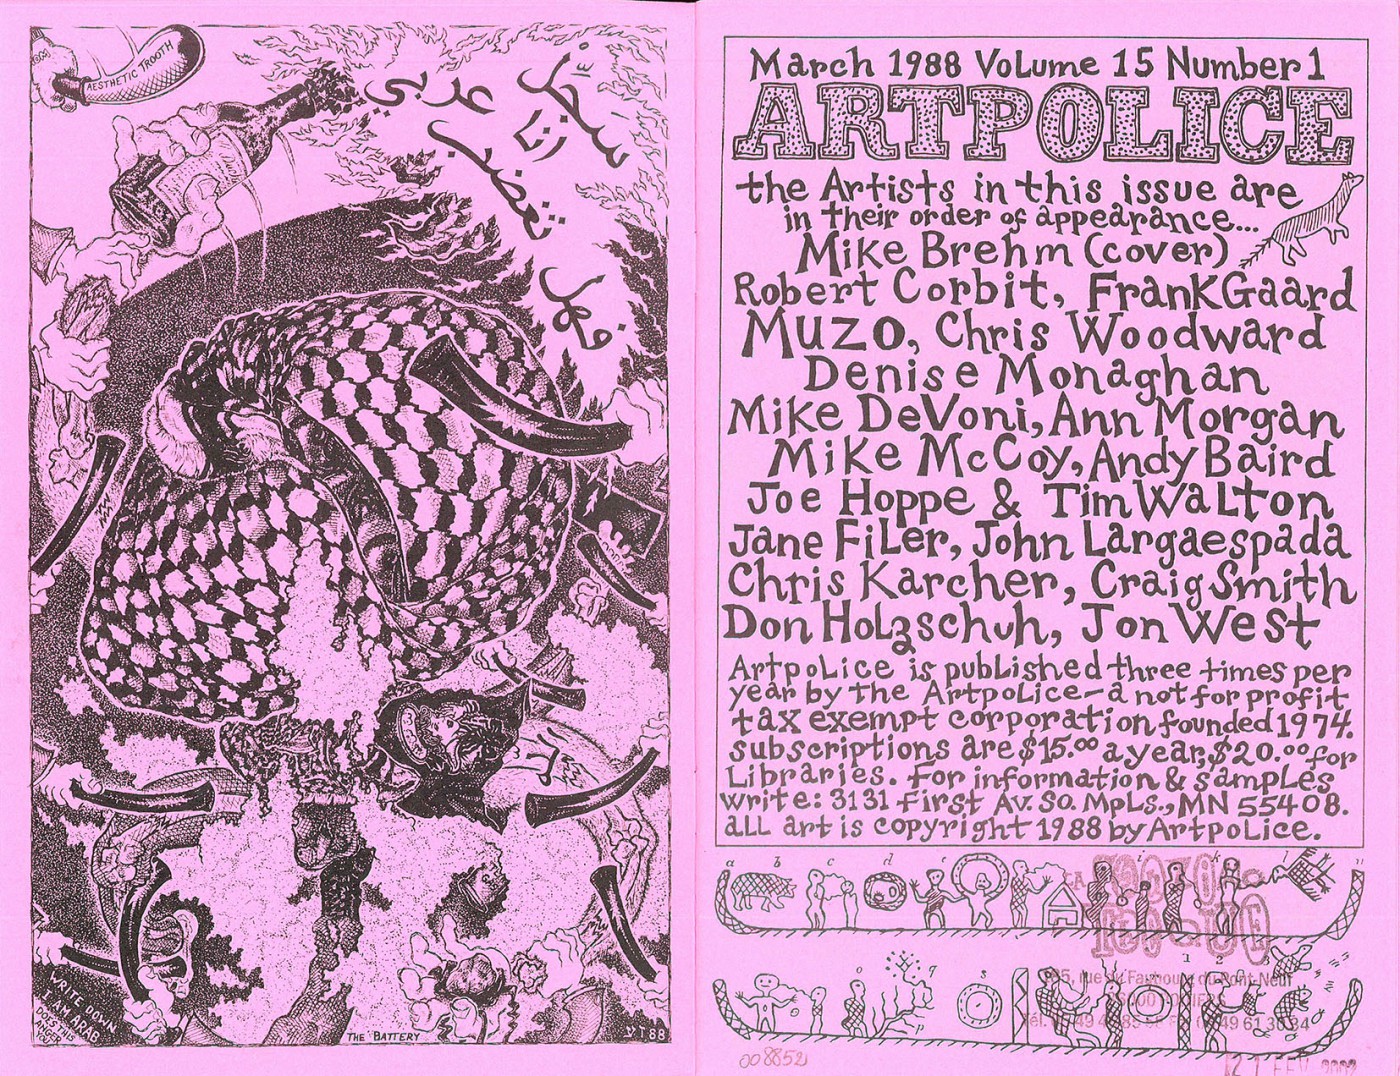 AESTHETIC TROOTH
سجّل
أنا عربي
فهل تغضب
WRITE DOWN
I AM ARAB
DOES THIS
THE BATTERY
88
March 1988 Volume 15 Number 1
ARTPOLICE
the Artists in this issue are
in their order of appearance...
Mike Brehm (cover)
Robert Corbit, Frank Gaard
Muzo, Chris Woodward
Denise Monaghan
Mike DeVoni, Ann Morgan
Mike McCoy, Andy Baird
Joe Hoppe & Tim Walton
Jane Filer, John Largaespada
Chris Karcher, Craig Smith
Don Holzschuh, Jon West
Artpolice is published three times per
year by the Artpolice—a not for profit
tax exempt corporation founded 1974.
subscriptions are $15.00 a year, $20.00 for
Libraries. for information & samples
write: 3131 First Av. So. Mpls., MN 55408.
all art is copyright 1988 by Artpolice.
a b c d e i k l n
o p q s
rue du Faubourg du Pont-Neuf
008852